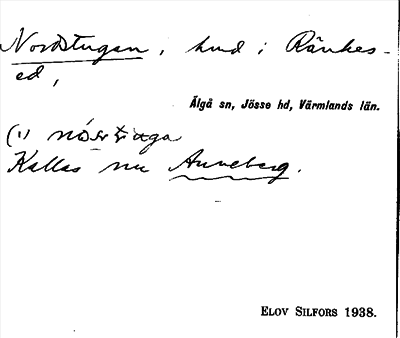 Nordstugan, hmd i Ränkes-
ed,
Älgå sn, Jösse hd, Värmlands län.
Kallas nu Anneberg.
ELOV SILFORS 1938.